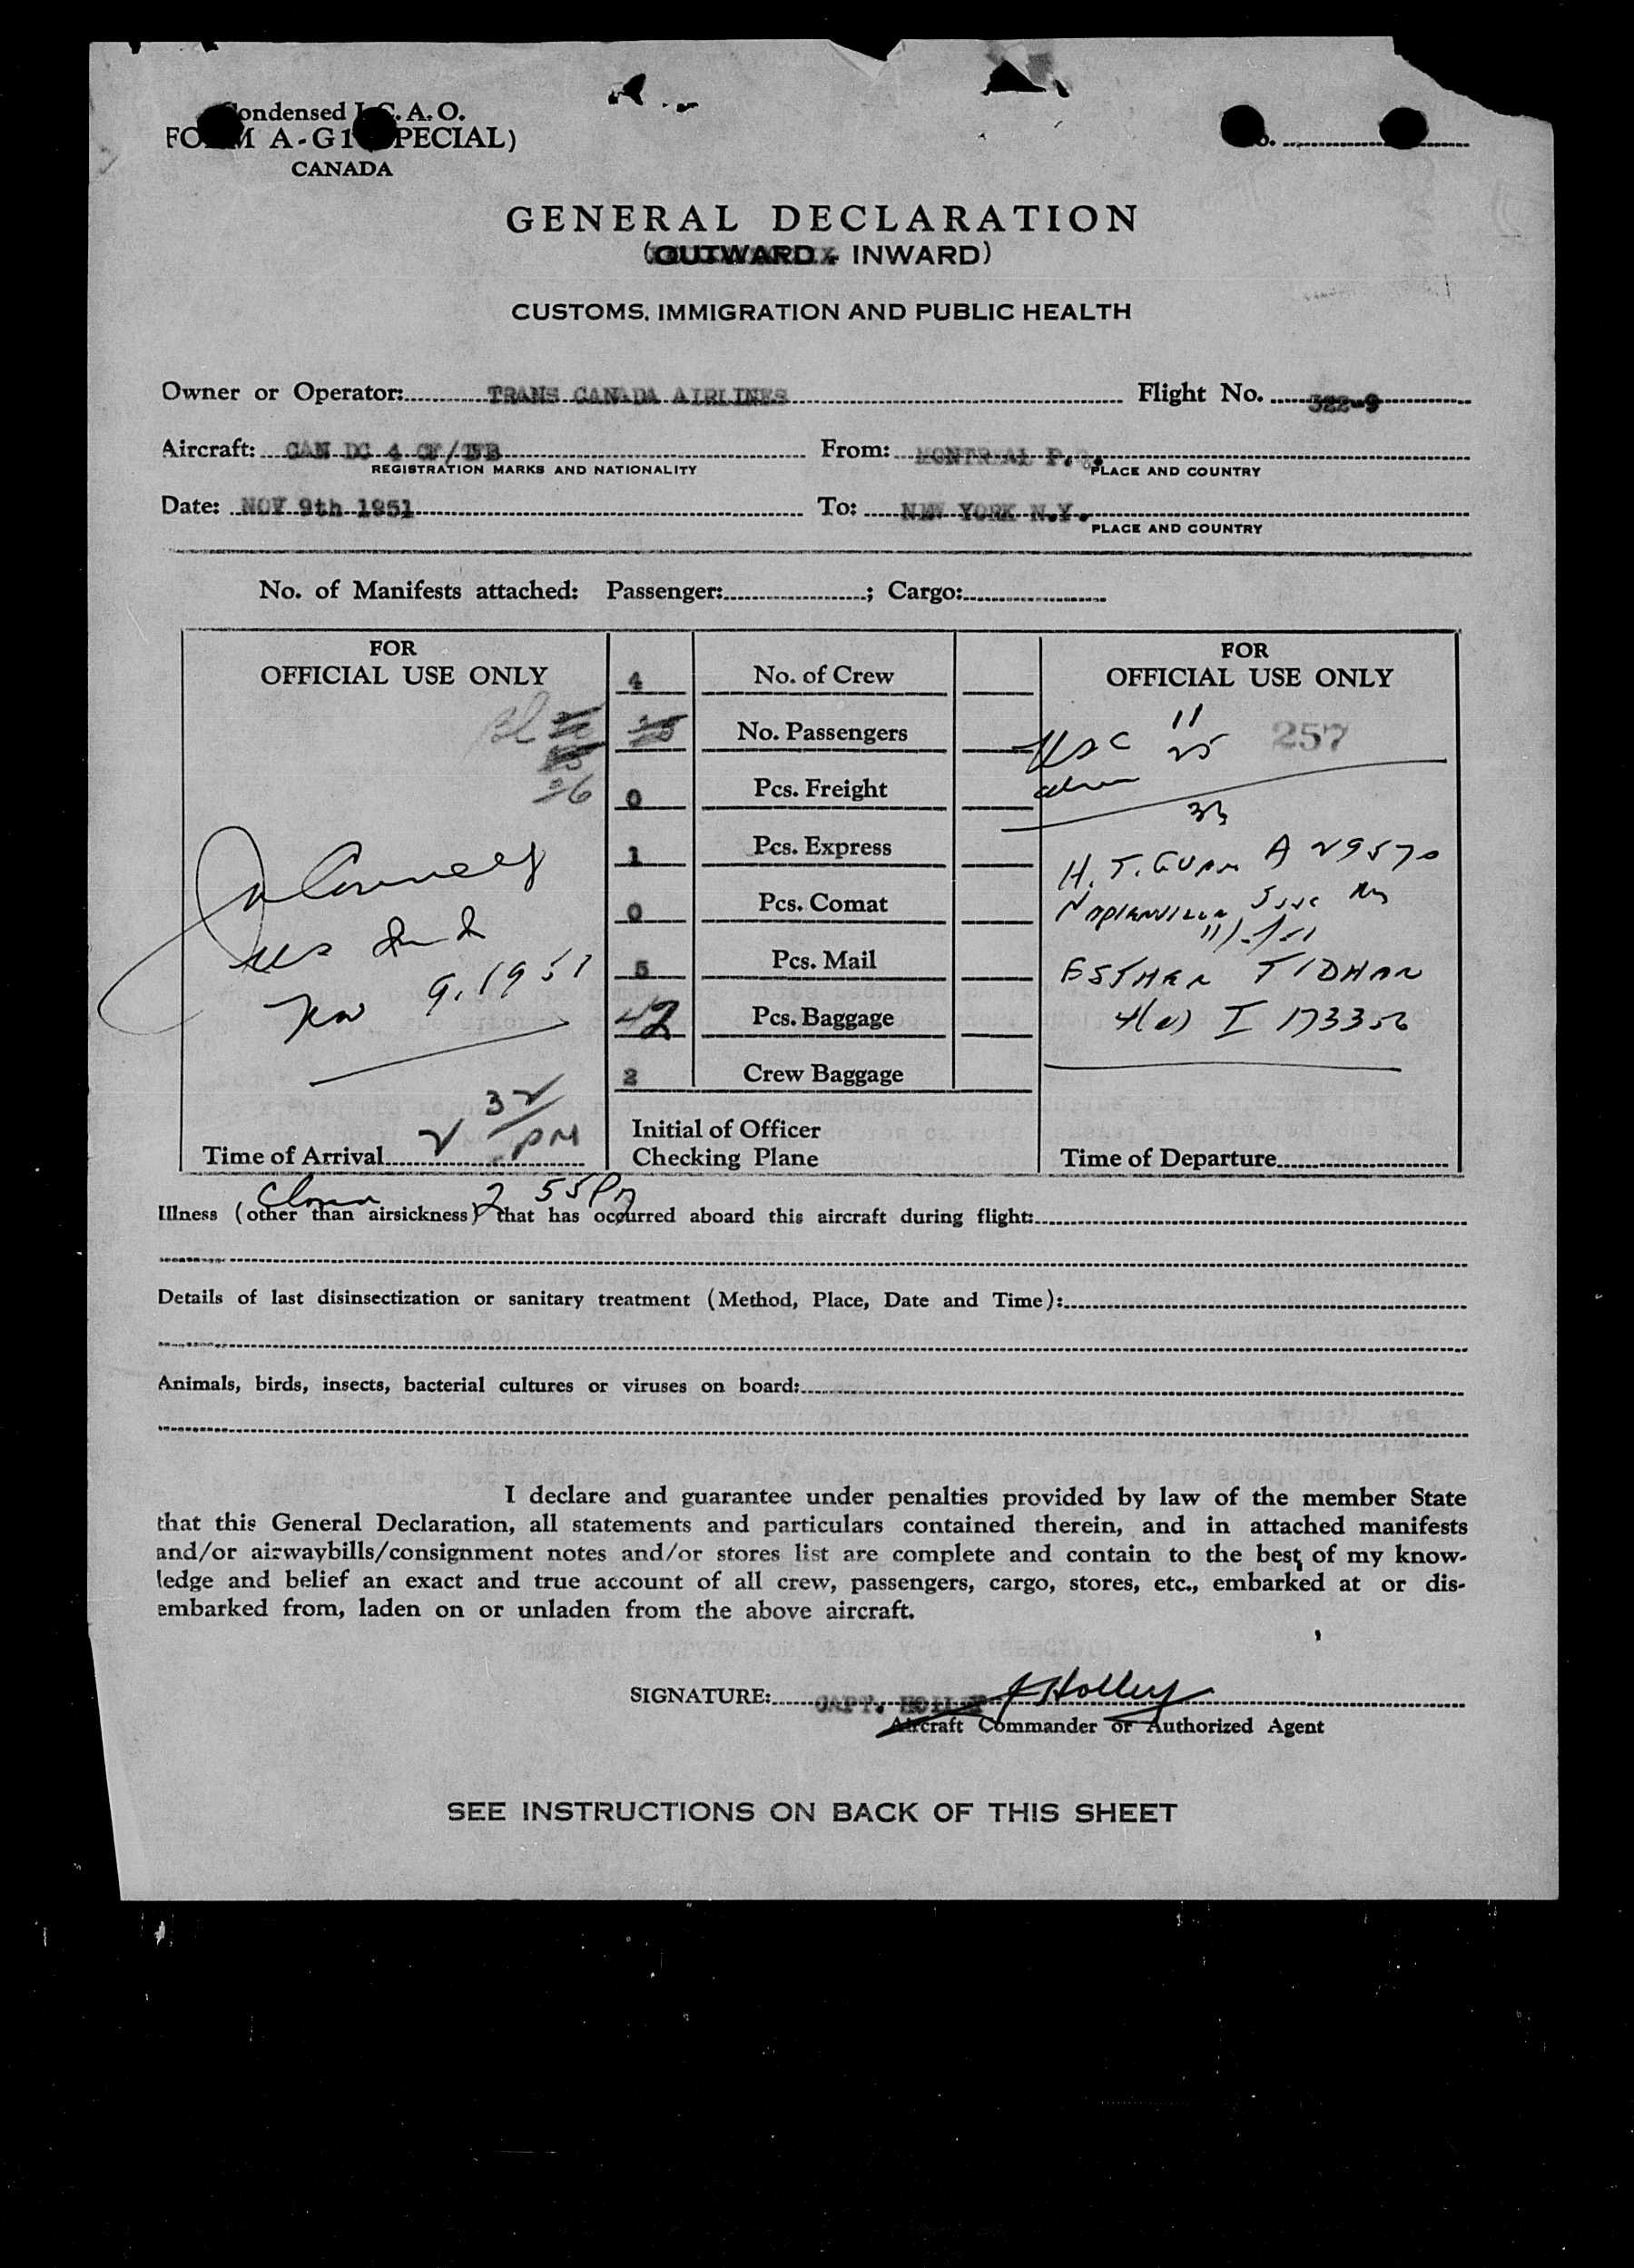 Condensed I.C.A.O.
FORM A-G1 (SPECIAL)
CANADA
GENERAL DECLARATION
(OUTWARD - INWARD)
CUSTOMS, IMMIGRATION AND PUBLIC HEALTH
Owner or Operator: TRANS CANADA AIRLINES Flight No. 322-9
Aircraft: CAN DC 4 CF/TFB From: MONTREAL P.Q.
REGISTRATION MARKS AND NATIONALITY PLACE AND COUNTRY
Date: NOV 9th 1951 To: NEW YORK N.Y.
PLACE AND COUNTRY
No. of Manifests attached: Passenger: ; Cargo:
FOR
OFFICIAL USE ONLY
36
Nov 9, 1951
Time of Arrival 2 32 PM
4 No. of Crew
No. Passengers
0 Pcs. Freight
1 Pcs. Express
0 Pcs. Comat
5 Pcs. Mail
42 Pcs. Baggage
2 Crew Baggage
Initial of Officer
Checking Plane
FOR
OFFICIAL USE ONLY
USC 11 257
25
H. T. A 29570
ESTHER TIDHAR
I 173356
Time of Departure
2 55 PM
Illness (other than airsickness) that has occurred aboard this aircraft during flight:
Details of last disinsectization or sanitary treatment (Method, Place, Date and Time):
Animals, birds, insects, bacterial cultures or viruses on board:
I declare and guarantee under penalties provided by law of the member State
that this General Declaration, all statements and particulars contained therein, and in attached manifests
and/or airwaybills/consignment notes and/or stores list are complete and contain to the best of my know-
ledge and belief an exact and true account of all crew, passengers, cargo, stores, etc., embarked at or dis-
embarked from, laden on or unladen from the above aircraft.
SIGNATURE: CAPT. HOLLEY J Holley
Aircraft Commander or Authorized Agent
SEE INSTRUCTIONS ON BACK OF THIS SHEET